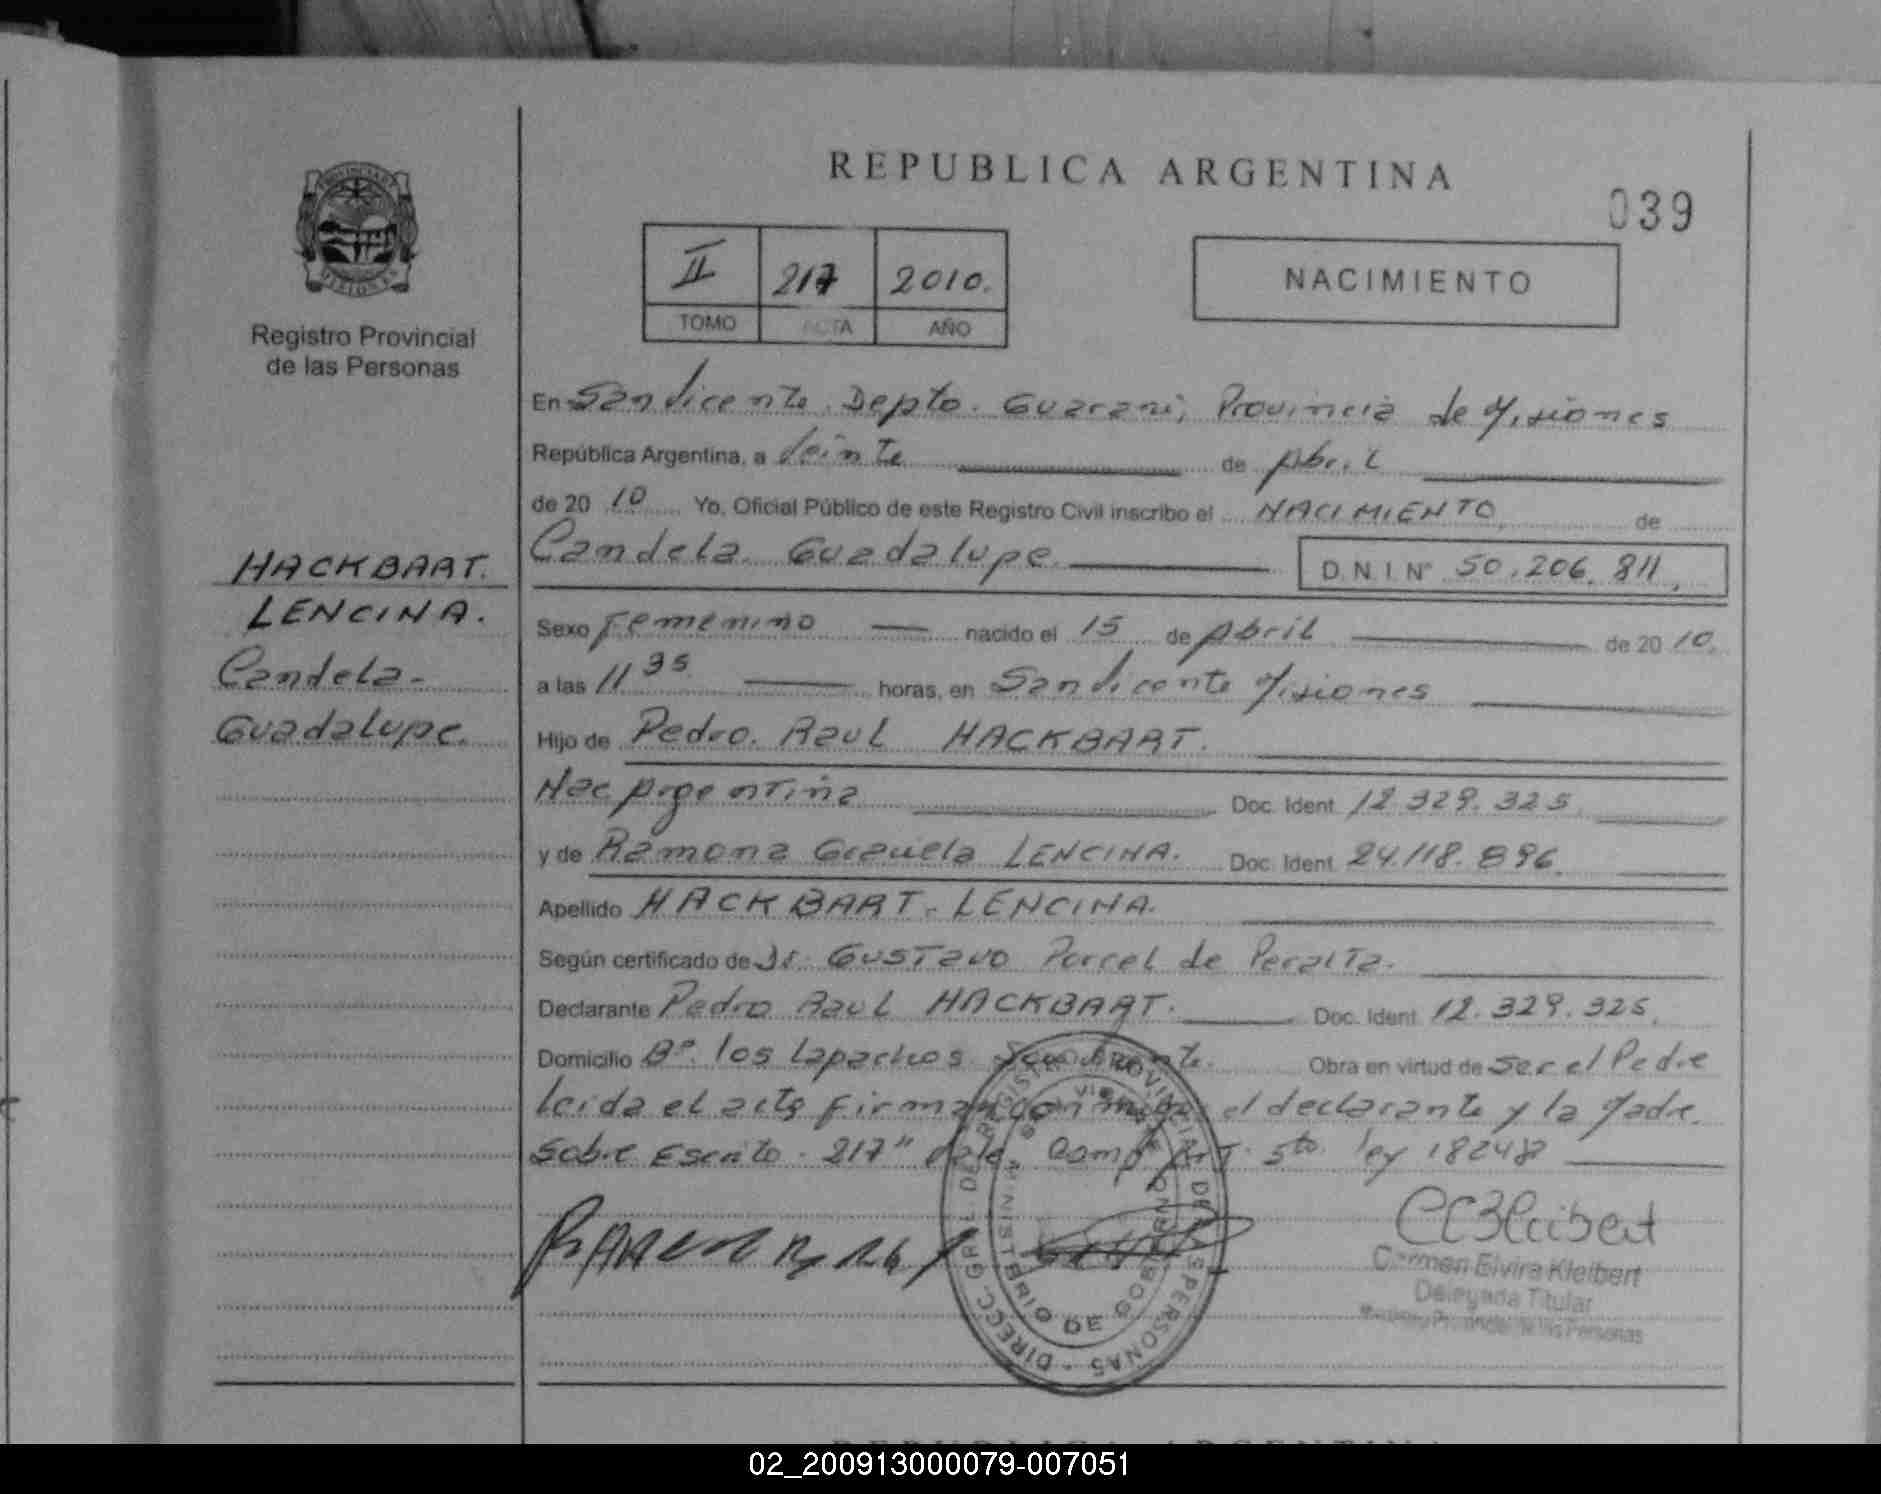 REPUBLICA ARGENTINA
039
PROVINCIA DE
MISIONES
Registro Provincial
de las Personas
II 217 2010.
TOMO ACTA AÑO
NACIMIENTO
En San Vicente Depto. Guarani, Provincia de Misiones
República Argentina, a Veinte de Abril
de 20 10 Yo, Oficial Público de este Registro Civil inscribo el NACIMIENTO, de
Candela Guadalupe D.N.I. Nº 50.206.811
HACKBART.
LENCINA.
Candela-
Guadalupe.
Sexo Femenino nacido el 15 de Abril de 20 10.
a las 11 35 horas, en San Vicente Misiones
Hijo de Pedro. Raul HACKBART.
Nac Argentina Doc. Ident. 12.329.325.
y de Ramona Graciela LENCINA. Doc. Ident. 24.118.896.
Apellido HACKBART - LENCINA.
Según certificado de Dr. Gustavo Porcel de Peralta.
Declarante Pedro Raul HACKBART. Doc. Ident. 12.329.325.
Domicilio Bº. los Lapachos San Vicente. Obra en virtud de Ser el Padre
leida el acta firman conmigo el declarante y la Madre.
Sobre Escrito. 217" Vale Comp Art. 5to. ley 18248
DIRECC. GRAL. DEL REGISTRO PROVINCIAL DE LAS PERSONAS -
MINISTERIO DE GOBIERNO
SAN VICENTE
CEKleibert
Carmen Elvira Kleibert
Delegada Titular
Registro Provincial de las Personas
REPUBLICA ARGENTINA
02_200913000079-007051